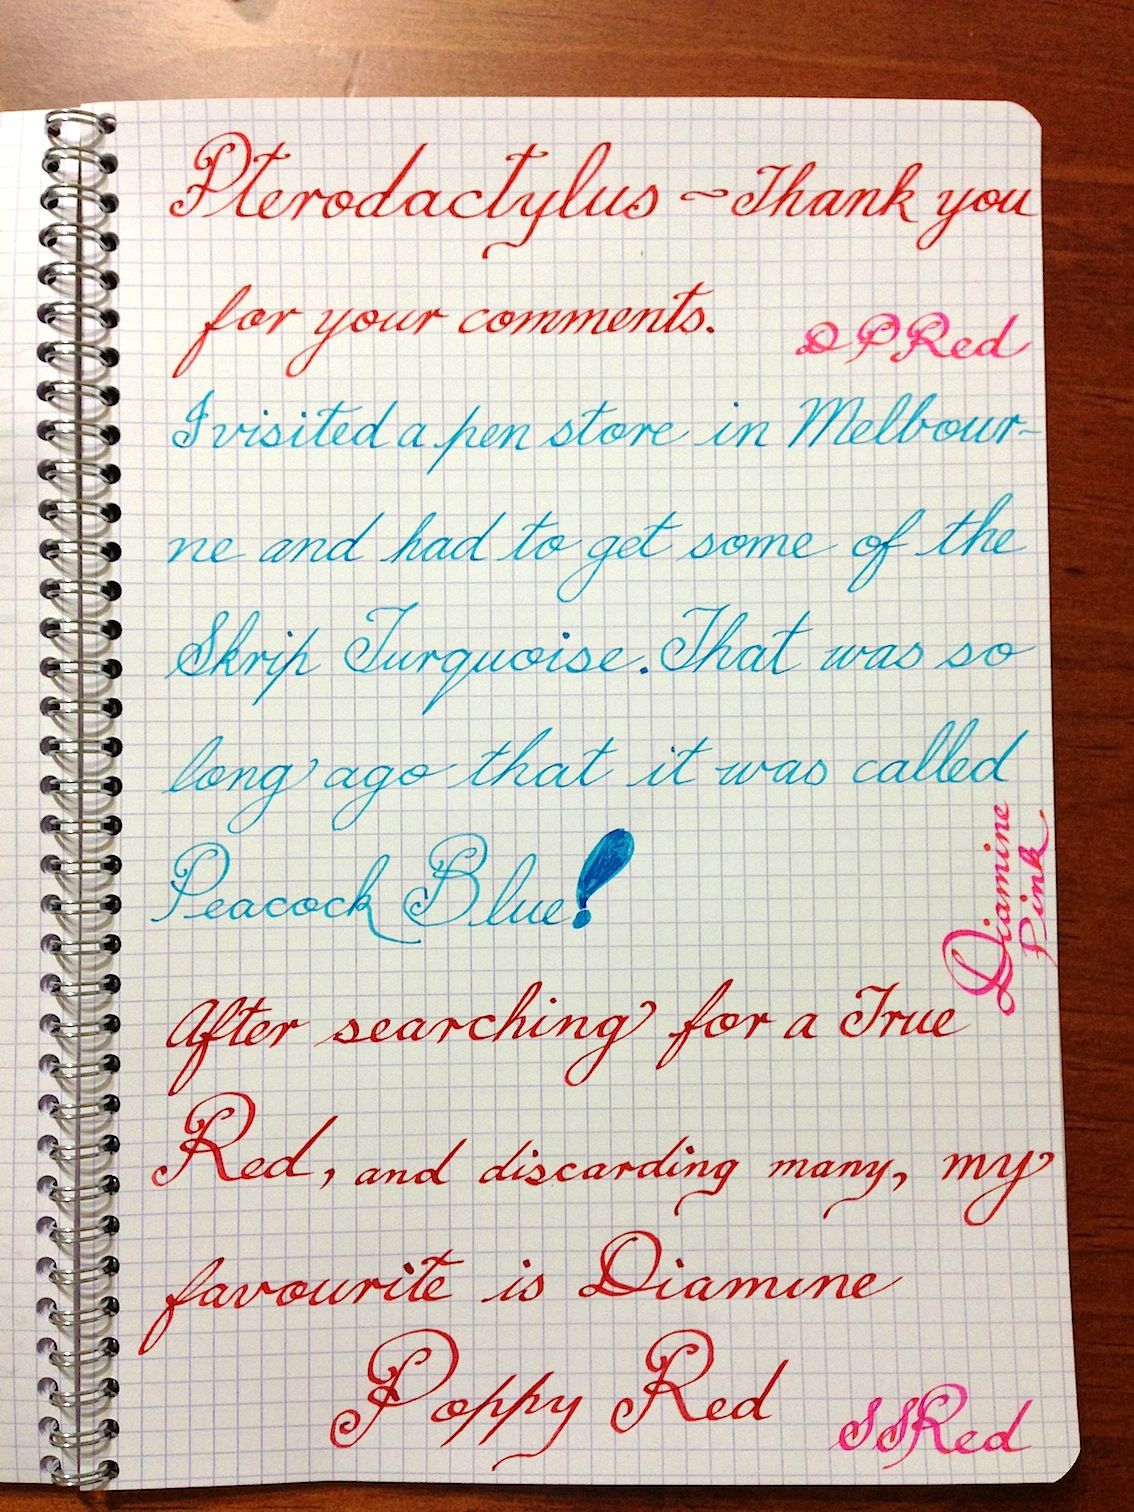 Pterodactylus ~ Thank you
for your comments.
DPRed
I visited a pen store in Melbour-
ne and had to get some of the
Skrip Turquoise. That was so
long ago that it was called
Peacock Blue!
Diamine
Pink
After searching for a True
Red, and discarding many, my
favourite is Diamine
Poppy Red
SSRed